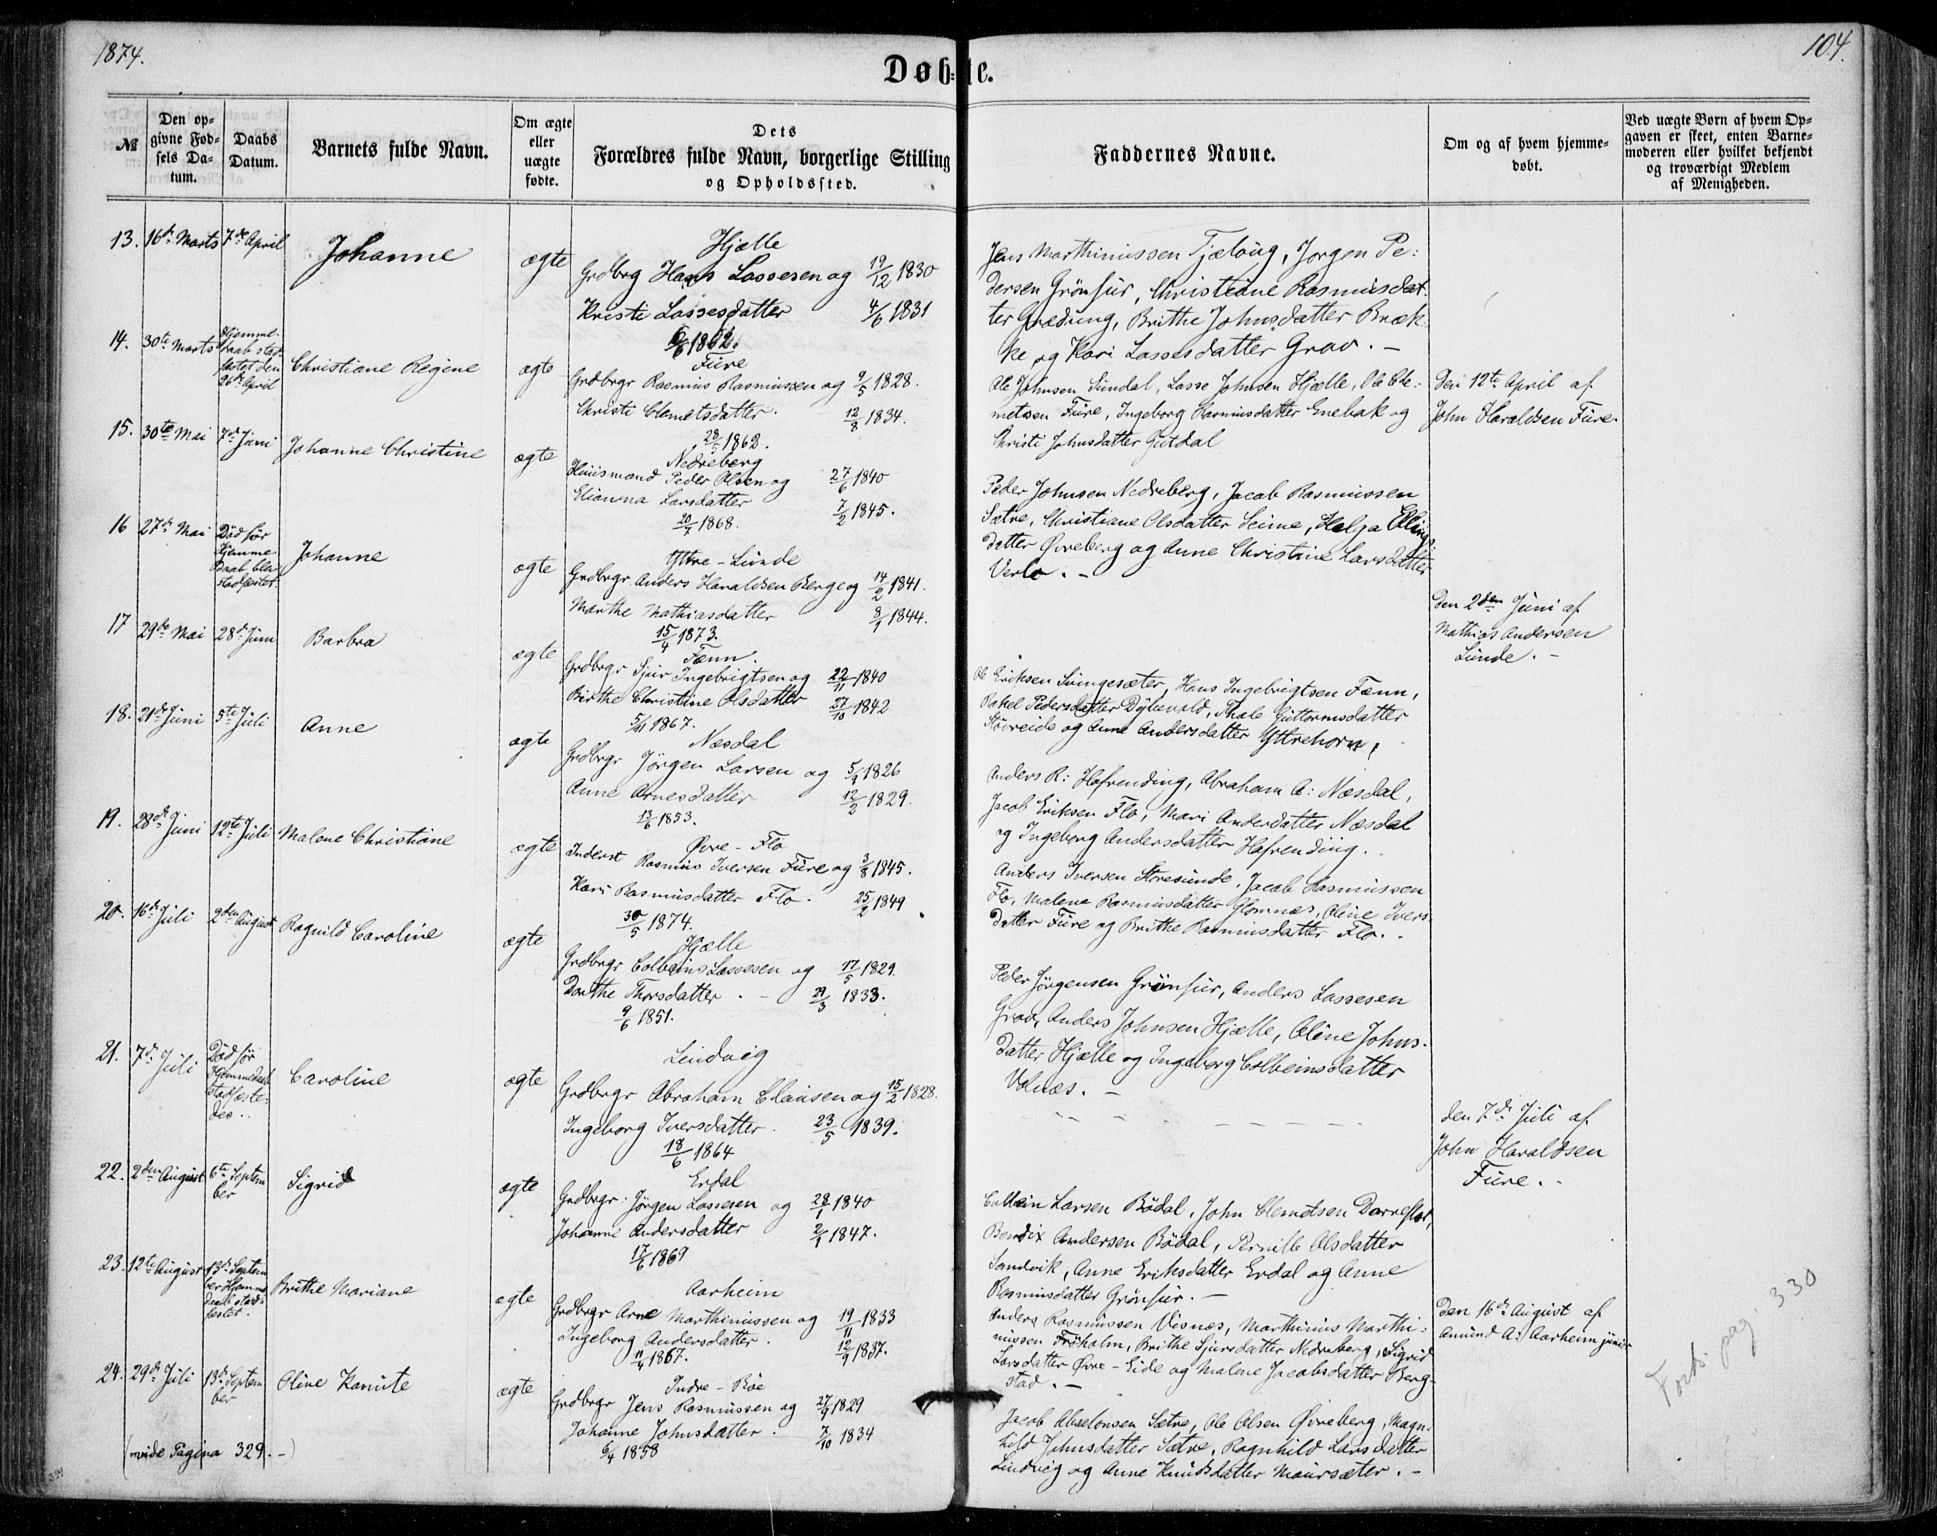 1874.
104.
Døbte.
№
Den opgivne Fødsels Datum.
Daabs Datum.
Barnets fulde Navn.
Om ægte eller uægte fødte.
Dets Forældres fulde Navn, borgerlige Stilling og Opholdssted.
Faddernes Navne.
Om og af hvem hjemmedøbt.
Ved uægte Børn af hvem Opgaven er skeet, enten Barnemoderen eller hvilket bekjendt og troværdigt Medlem af Menigheden.
13. 16de Marts 7de April Johanne ægte
Hjælle
Grdbrg Hans Lassesen og 19/12 1830
Kristi Lassesdatter 4/6 1831
1862.
Jens Marthinussen Tjelaug, Jørgen Pe:
dersen Grönfur, Christiane Rasmusdat
ter Grædung, Brithe Johnsdatter Bræk
ke, og Kari Lassesdatter Grov. -
14. 30te Marts Hjemme-
daab stad
fæstet den
26de April
Christiane Regine ægte
Fure
Grdbrgr Rasmus Rasmussen og 9/5 1828.
Christi Clemetsdatter. 12/8 1834.
1862.
Ole Johnsen Sundal, Lasse Johnsen Hjælle, Ole Cle:
metsen Fure, Ingeborg Rasmusdatter Enebak og
Christi Johnsdatter Gutdal
Den 12te April af
John Haraldsen Fure.
15. 30te Mai 7de Juni Johanne Christine ægte
Nedreberg
Huusmand Peder Olsen og 27/6 1840
Elianna Larsdatter 7/2 1845.
20/7 1868.
Peder Johnsen Nedreberg, Jacob Rasmussen
Sætre, Christiane Olsdatter Leime, Helga Elling
datter Øvreberg og Anne Christine Larsdatter
Verlo. -
16 27de Mai Död før
Hjemme-
Daab blev
stadfæstet
Johanne ægte
Yttre-Lunde
Grdbrgr Anders Haraldsen Berge og 14/2 1841.
Marthe Mathiasdatter 8/1 1844.
15/4 1873.
Den 2den Juni af
Mathias Andersen
Lunde. -
17 29de Mai 28de Juni Barbra ægte
Fænn.
Grdbrgr Sjur Ingebrigtsen og 22/11 1840
Birthe Christine Olsdatter 27/10 1842
5/11 1867.
Ole Eriksen Svingesæter, Hans Ingebrigtsen Fænn,
Rakel Pedersdatter Dybevold, Thale Guttormsdatter
Støvreide og Anne Andersdatter Yttrehorn,
18. 21de Juni 5te Juli Anne ægte
Næsdal
Grdbrgr Jørgen Larsen og 5/4 1826
Anne Arnesdatter 12/2 1829.
13/6 1853.
Anders R: Hafrending, Abraham A: Næsdal,
Jacob Eriksen Flo, Mari Andersdatter Næsdal
og Ingeborg Andersdatter Hafrending.
19. 28de Juni 12te Juli Malene Christiane ægte
Øvre-Flo
Inderst Rasmus Iversen Fure og 3/8 1845.
Kari Rasmusdatter Flo. 25/2 1849
30/5 1874.
Anders Iversen Storesunde, Jacob Rasmussen
Flo, Malene Rasmusdatter Glomnæs, Oline Ivers-
datter Fure og Brithe Rasmusdatter Flo. -
20. 16de Juli 2den August Ragnild Caroline ægte
Hjælle
Grdbrgr Colbeins Lassesen og 17/5 1829.
Dorthe Thorsdatter. - 29/3 1833.
9/6 1851.
Peder Jørgensen Grönfur, Anders Lassesen
Grov, Anders Johnsen Hjælle, Oline Johns-
datter Hjælle og Ingeborg Colbeinsdatter
Volnæs. -
21. 7de Juli Död før
Hjemmedaab
stadfæste-
des..
Caroline ægte
Lindvig
Grdbrgr Abraham Clausen og 15/2 1828.
Ingeborg Iversdatter. 23/5 1839.
18/6 1864
den 7de Juli af
John Haraldsen
Fure. -
22. 2den August 6te Septem
ber
Sigrid ægte
Erdal
Grdbrgr. Jørgen Lassesen og 28/1 1840
Johanne Andersdatter 2/1 1847.
17/6 1869
Colbein Larsen Bödal, John Clemetsen Darreflot,
Bendix Andersen Bödal, Pernille Olsdatter
Sandvik, Anne Eriksdatter Erdal og Anne
Rasmusdatter Grönfur. -
23. 12te August 13de Septem
ber Hjemme
daab stad-
festet.
Brithe Mariane ægte
Aarheim
Grdbrgr Arne Marthinussen og 19/11 1833
Ingeborg Andersdatter. 12/9 1837.
1867.
Anders Rasmussen Visnæs, Marthinus Marthi-
nussen Fröholm, Brithe Sjursdatter Nedreberg, Sigrid
Larsdatter Øvre-Eide og Malene Jacobsdatter Berg-
stad. -
Den 16de August af
Amund A: Aarheim junior
24. 29de Juli 13de Septem
ber
Oline Kanute ægte
Indre-Böe
Grdbrgr Jens Rasmussen og 27/9 1829
Johanne Johnsdatter. 7/10 1834
6/4 1858
Jacob Abselonsen Sætre, Ole Olsen Øvreberg, Magn-
hild Johnsdatter Sætre, Ragnhild Larsdatter
Lindvig og Anne Knudsdatter Maursæter. -
(vide Pagina 329. -)
Forts. pag. 330